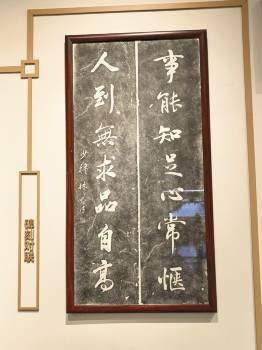 事能知足心常愜
人到無求品自高
少穆林
碑刻对联